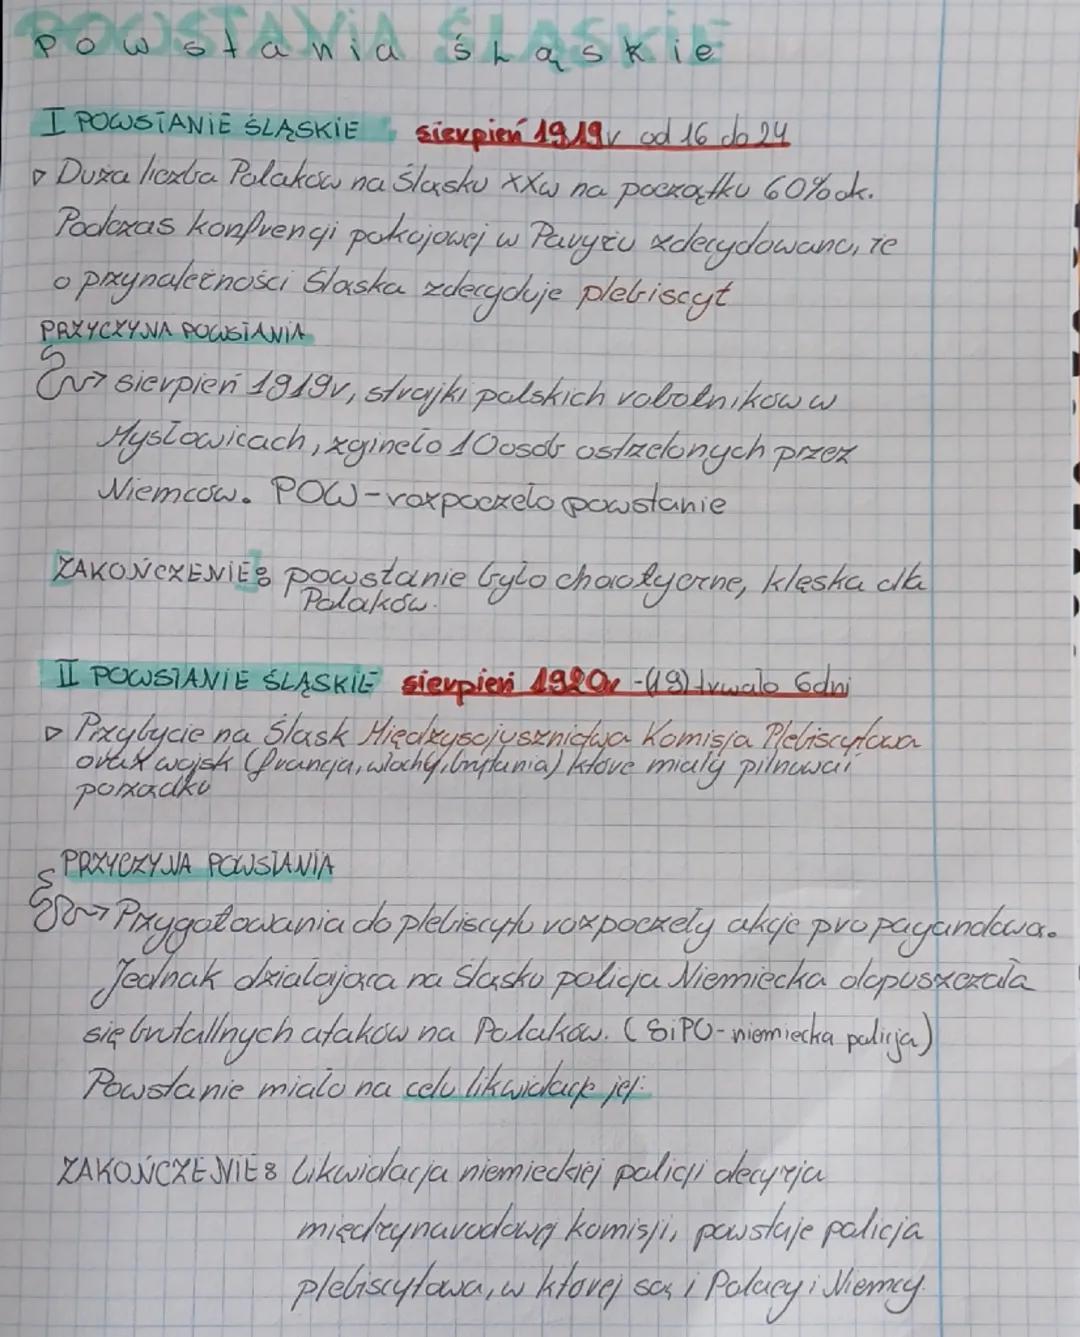 POWSTANIA ŚLĄSKIE
Powstania śląskie
I POWSTANIE ŚLĄSKIE sierpień 1919r od 16 do 24
Duża liczba Polaków na Śląsku XXw na początku 60% ok.
Podczas konfrencji pokojowej w Paryżu zdecydowano, że
o przynależności Śląska zdecyduje plebiscyt
PRZYCZYNA POWSTANIA
sierpień 1919r, strajki polskich robotników w
Mysłowicach, zgineło 10 osób ostrzelonych przez
Niemców. POW - rozpoczeło powstanie
ZAKOŃCZENIE: powstanie było chaotyczne, klęska dla
Polaków.
II POWSTANIE ŚLĄSKIE sierpień 1920r - (19) trwało 6dni
Przybycie na Śląsk Międzysojusznictwa Komisja Plebiscytowa
oraz wojsk (francja, włochy, brytania) które miały pilnować
porządku
PRZYCZYNA POWSTANIA
Przygotowania do plebiscytu rozpoczeły akcje propagandową.
Jednak działająca na Śląsku policja Niemiecka dopuszczała
się brutallnych ataków na Polaków. (SiPO - niemiecka policja)
Powstanie miało na celu likwidację jej.
ZAKOŃCZENIE: likwidacja niemieckiej policji decyzja
międzynarodowej komisji, powstaje policja
plebiscytowa, w której są i Polacy i Niemcy.